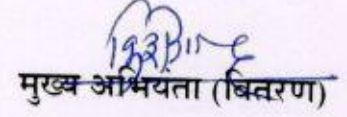 मुख्य अभियंता (वितरण)